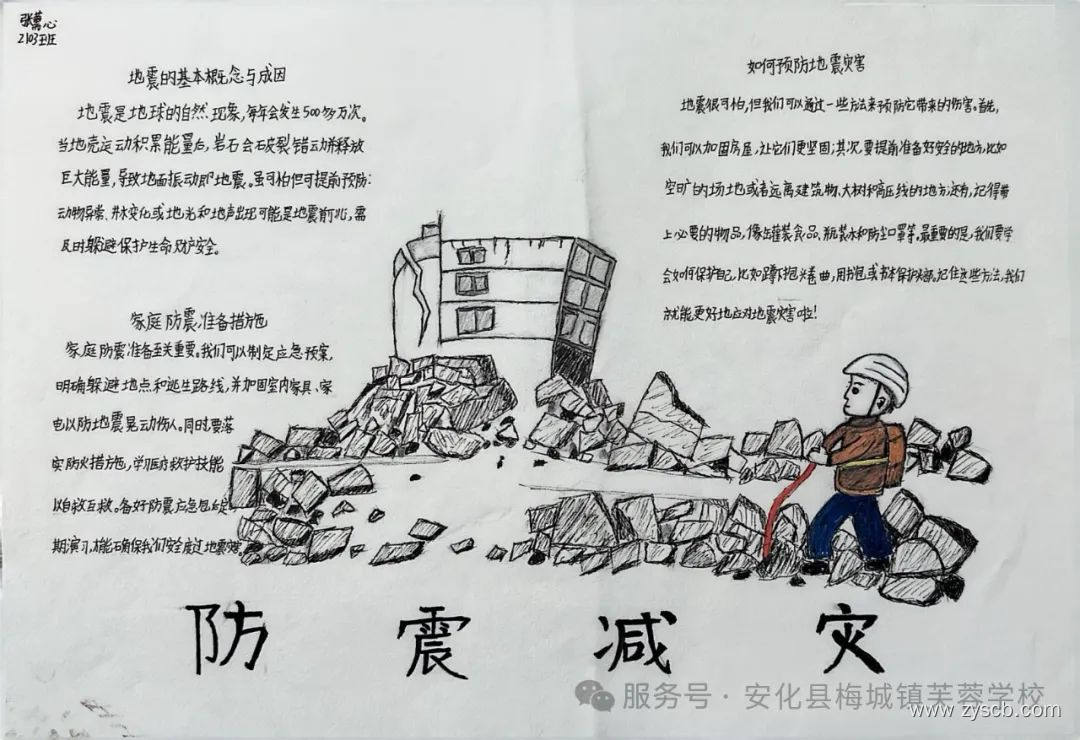 张蕙心
2103班
地震的基本概念与成因
地震是地球的自然现象,每年会发生500多万次。
当地壳运动积累能量后,岩石会破裂错动并释放
巨大能量,导致地面振动即地震。虽可怕但可提前预防:
动物异常、井水变化或地光和地声出现可能是地震前兆,需
及时躲避保护生命财产安全。
家庭防震准备措施
家庭防震准备至关重要。我们可以制定应急预案,
明确躲避地点和逃生路线,并加固室内家具、家
电以防地震晃动伤人。同时要落
实防火措施,学习医疗救护技能
以自救互救。备好防震应急包,定
期演习,才能确保我们安全度过地震灾害
如何预防地震灾害
地震很可怕,但我们可以通过一些方法来预防它带来的伤害。首先,
我们可以加固房屋,让它们更坚固;其次,要提前准备好安全的地方,比如
空旷的场地或者远离建筑物、大树和高压线的地方;还有,记得带
上必要的物品,像罐装食品、瓶装水和防尘口罩等。最重要的是,我们要学
会如何保护自己,比如蹲下抱头卷曲,用书包或书本保护头部。记住这些方法,我们
就能更好地应对地震灾害啦!
防震减灾
服务号·安化县梅城镇芙蓉学校
www.zyscb.com